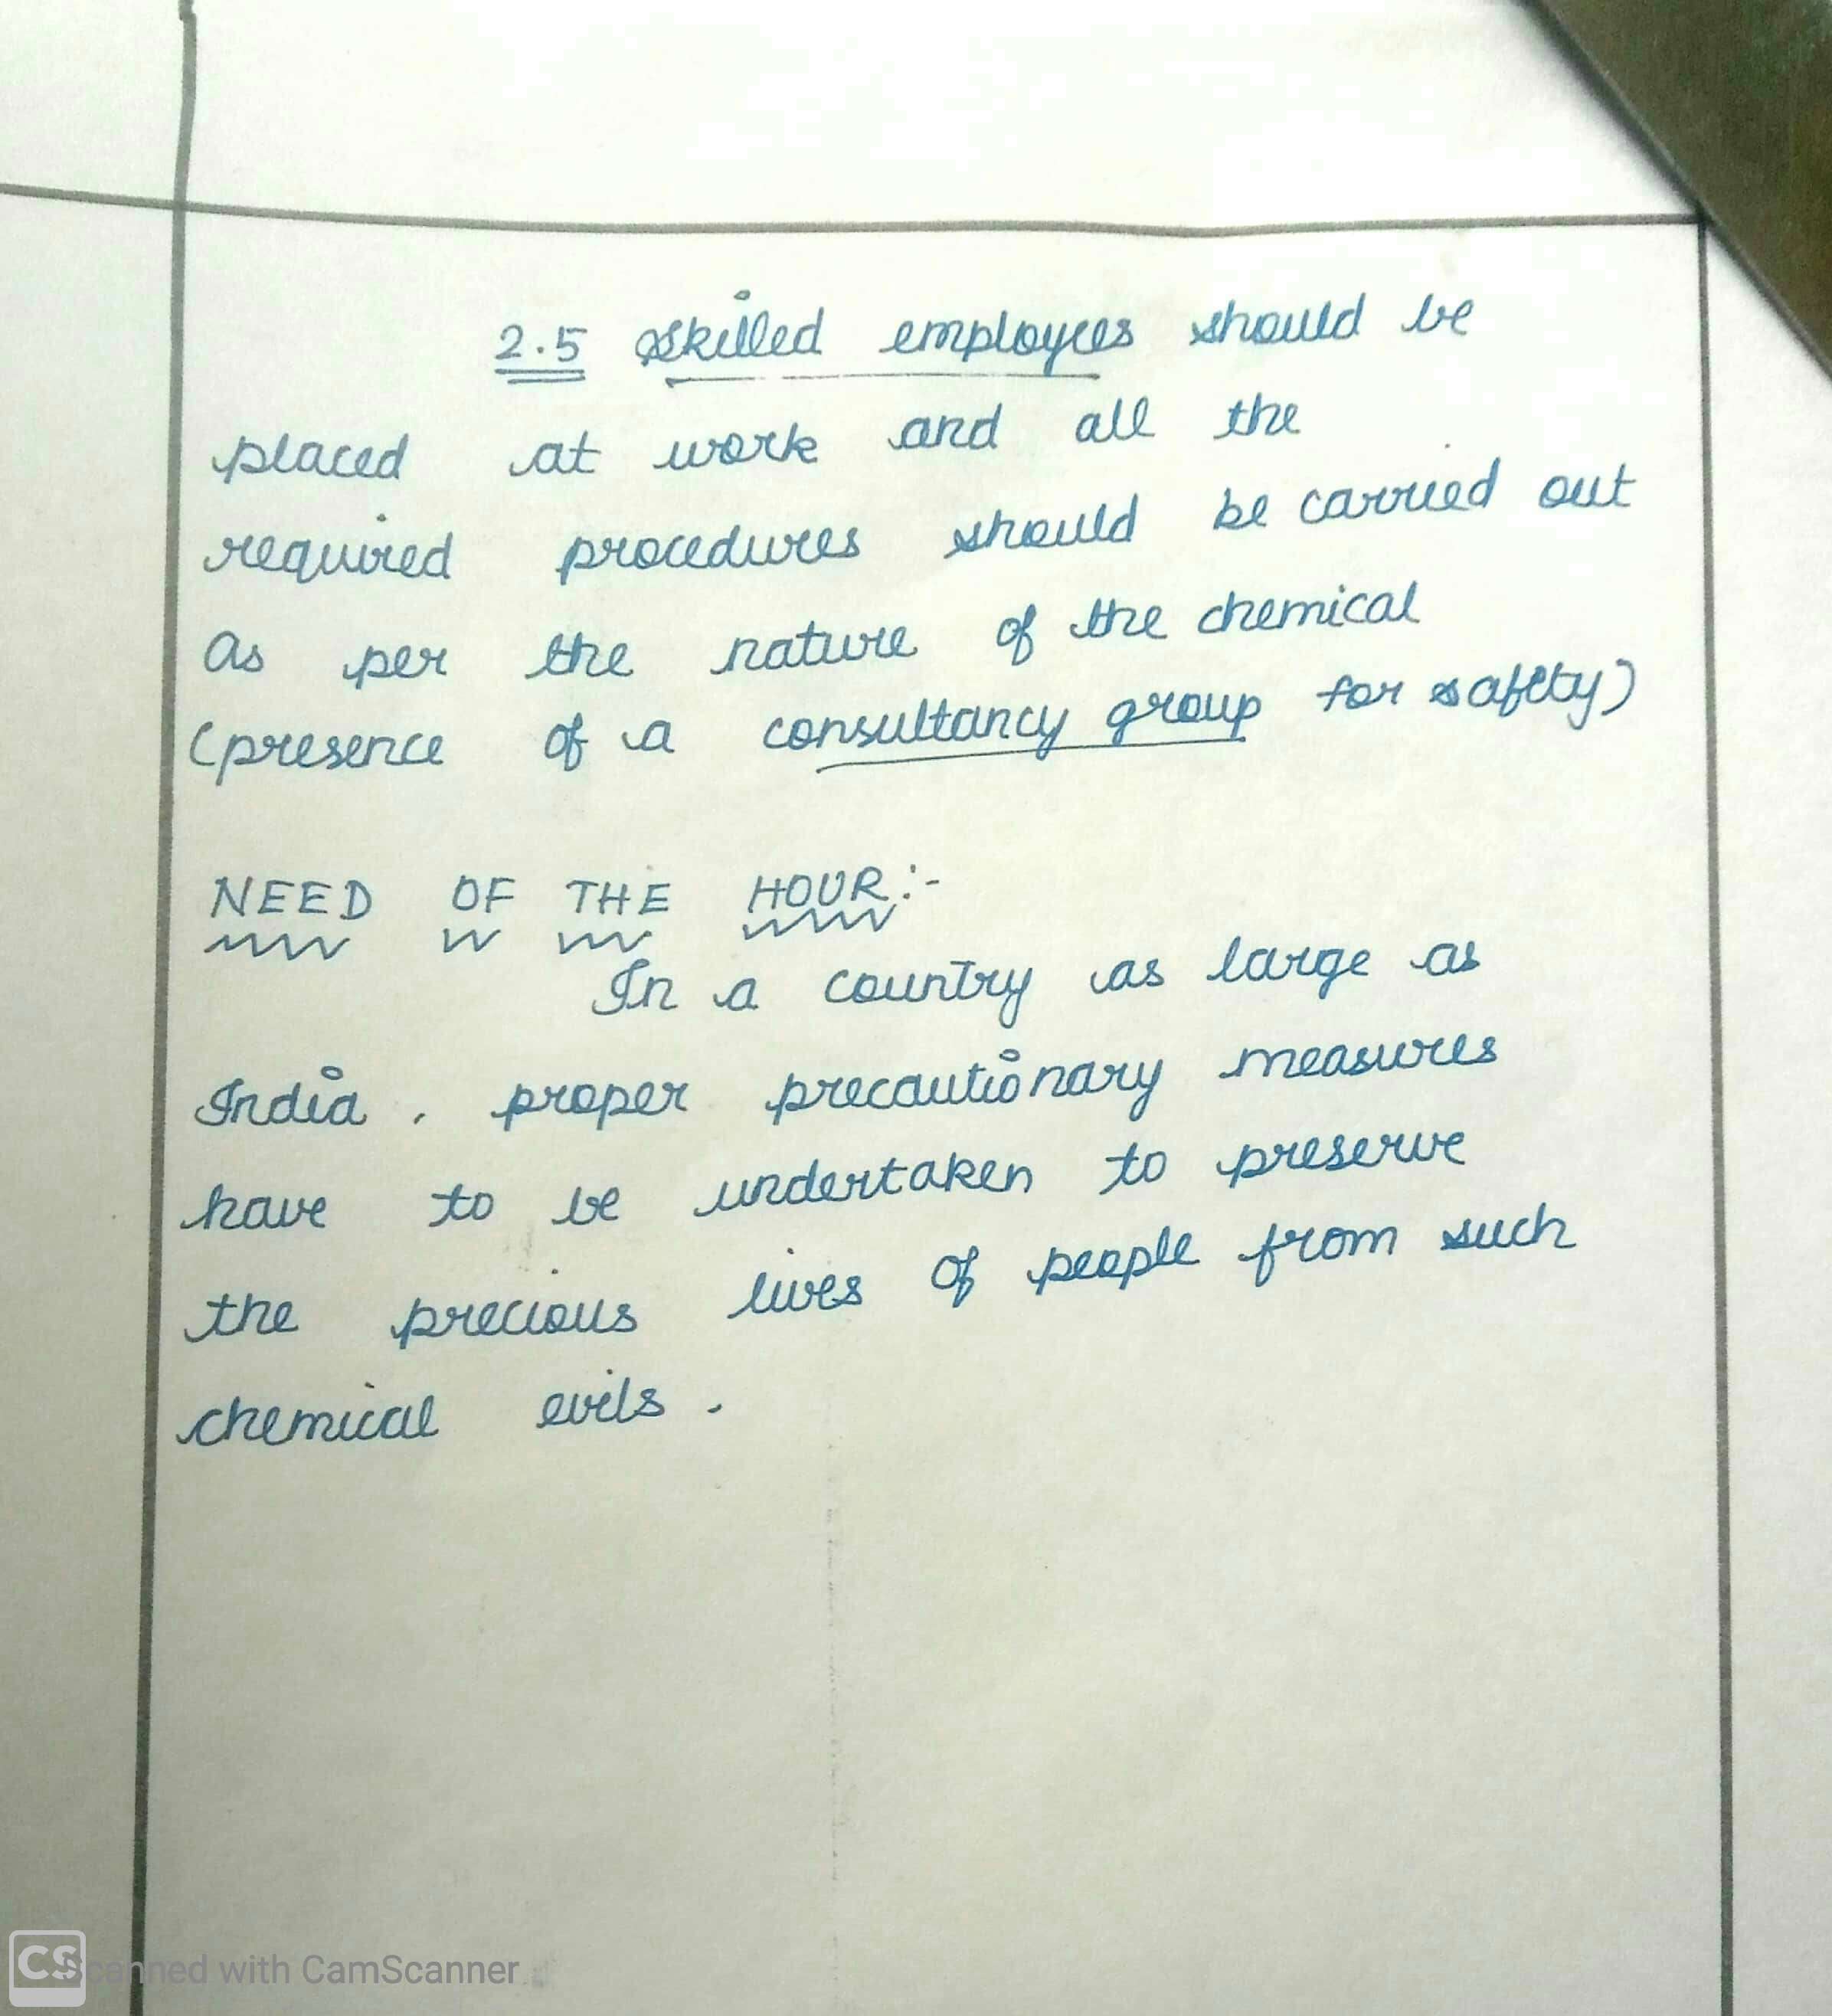 2.5 Skilled employees should be
placed at work and all the
required procedures should be carried out
As per the nature of the chemical
(presence of a consultancy group for safety)
NEED OF THE HOUR:-
In a country as large as
India, proper precautionary measures
have to be undertaken to preserve
the precious lives of people from such
chemical evils.
CS Scanned with CamScanner